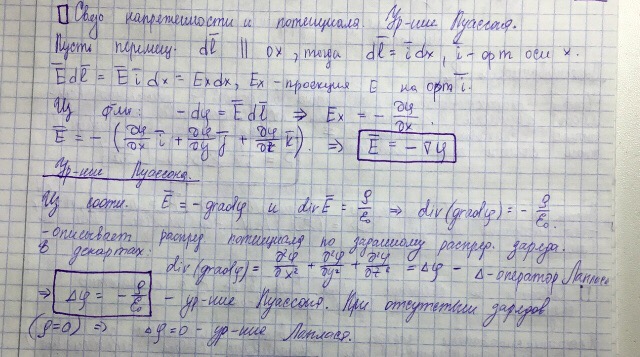 Связь напряженности и потенциала. Ур-ние Пуассона.
Пусть перемещ. dl̅ || ox, тогда dl̅ = i̅dx, i̅ - орт оси x.
E̅dl̅ = E̅ i̅ dx = Exdx, Ex - проекция E на орт i̅.
Из ф-лы: -dφ = E̅dl̅ ⇒ Ex = - ∂φ/∂x.
E̅ = - (∂φ/∂x i̅ + ∂φ/∂y j̅ + ∂φ/∂z k̅). ⇒ E̅ = - ∇φ
Ур-ние Пуассона.
Из соотн. E̅ = -gradφ и divE̅ = ρ/ε₀ ⇒ div(gradφ) = - ρ/ε₀.
- описывает распред потенциала по заданному распред. заряда.
В декартах: div(gradφ) = ∂²φ/∂x² + ∂²φ/∂y² + ∂²φ/∂z² = Δφ - Δ-оператор Лапласа
⇒ Δφ = - ρ/ε₀ - ур-ние Пуассона. При отсутствии зарядов
(ρ=0) ⇒ Δφ=0 - ур-ние Лапласа.